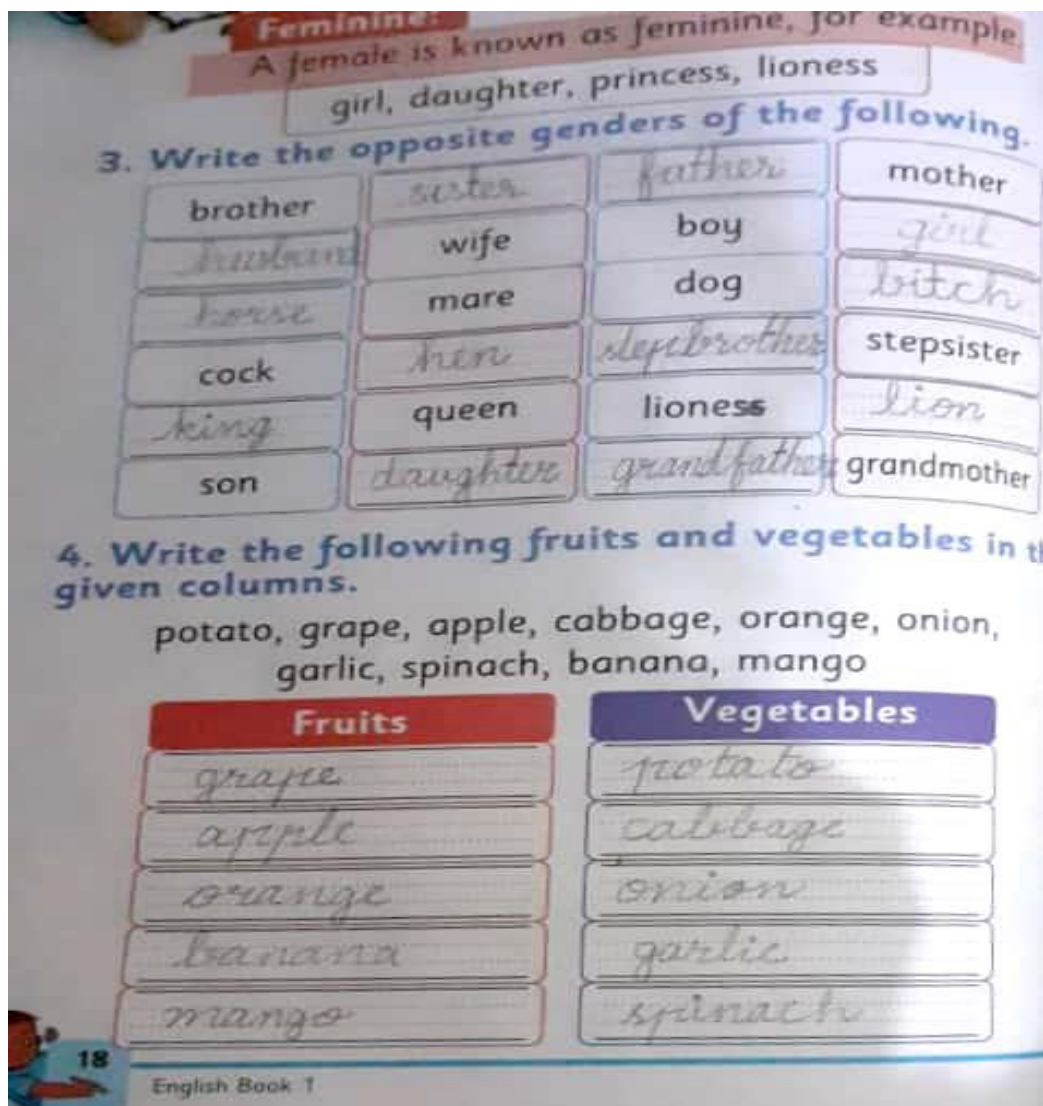 Feminine:
A female is known as feminine, for example,
girl, daughter, princess, lioness
3. Write the opposite genders of the following.
brother sister father mother
husband wife boy girl
horse mare dog bitch
cock hen stepbrother stepsister
king queen lioness lion
son daughter grandfather grandmother
4. Write the following fruits and vegetables in th
given columns.
potato, grape, apple, cabbage, orange, onion,
garlic, spinach, banana, mango
Fruits Vegetables
grape potato
apple cabbage
orange onion
banana garlic
mango spinach
18
English Book 1